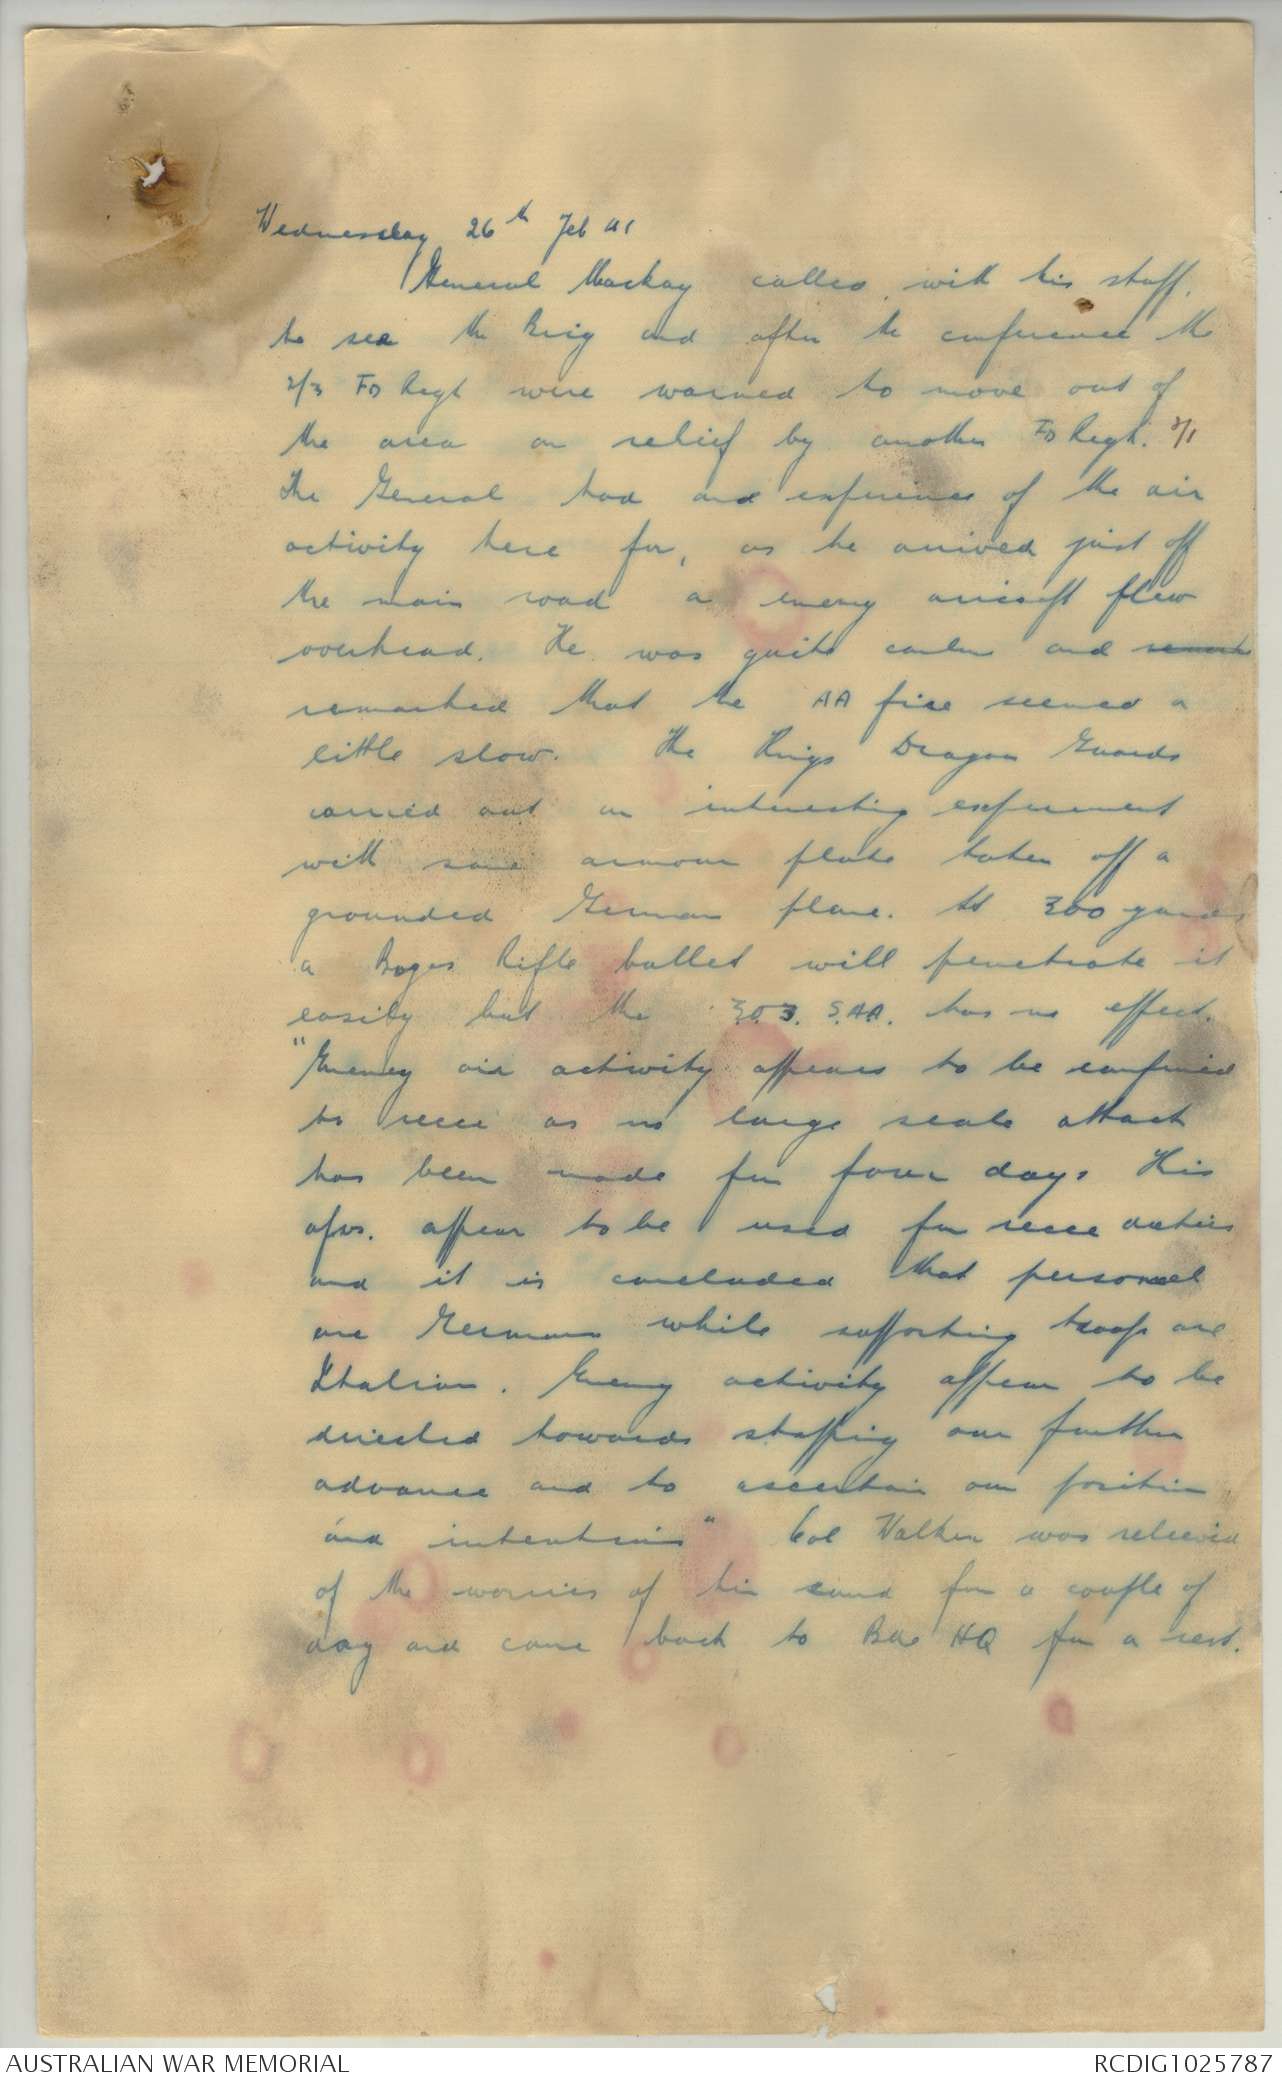 Wednesday 26th Feb 41
General Mackay called, with his staff,
to see the Brig and after the conference the
2/3 FD Regt were warned to move out of
the area on relief by another FD Regt. 2/1
The General had and experience of the air
activity here for, as he arrived just off
the main road a enemy aircraft flew
overhead. He was quite calm and
remarked that the AA fire seemed a
little slow. The Kings Dragon Guards
carried out an interesting experiment
with some armour plate taken off a
grounded German plane. At 300 yards
a Boyes Rifle bullet will penetrate it
easily but the .303. S.AA. has no effect.
"Enemey air activity appears to be confined
to recce as no large scale attack
has been made for four days His
afvs. appear to be used for recce duties
and it is concluded that personnel
are Germans while supporting troops are
Italian. Enemy activity appear to be
directed towards stopping our further
advance and to ascertain our position
and intentions" Col Walker was relieved
of the worries of his comd for a couple of
day and came back to Bde HQ for a rest.
AUSTRALIAN WAR MEMORIAL
RCDIG1025787